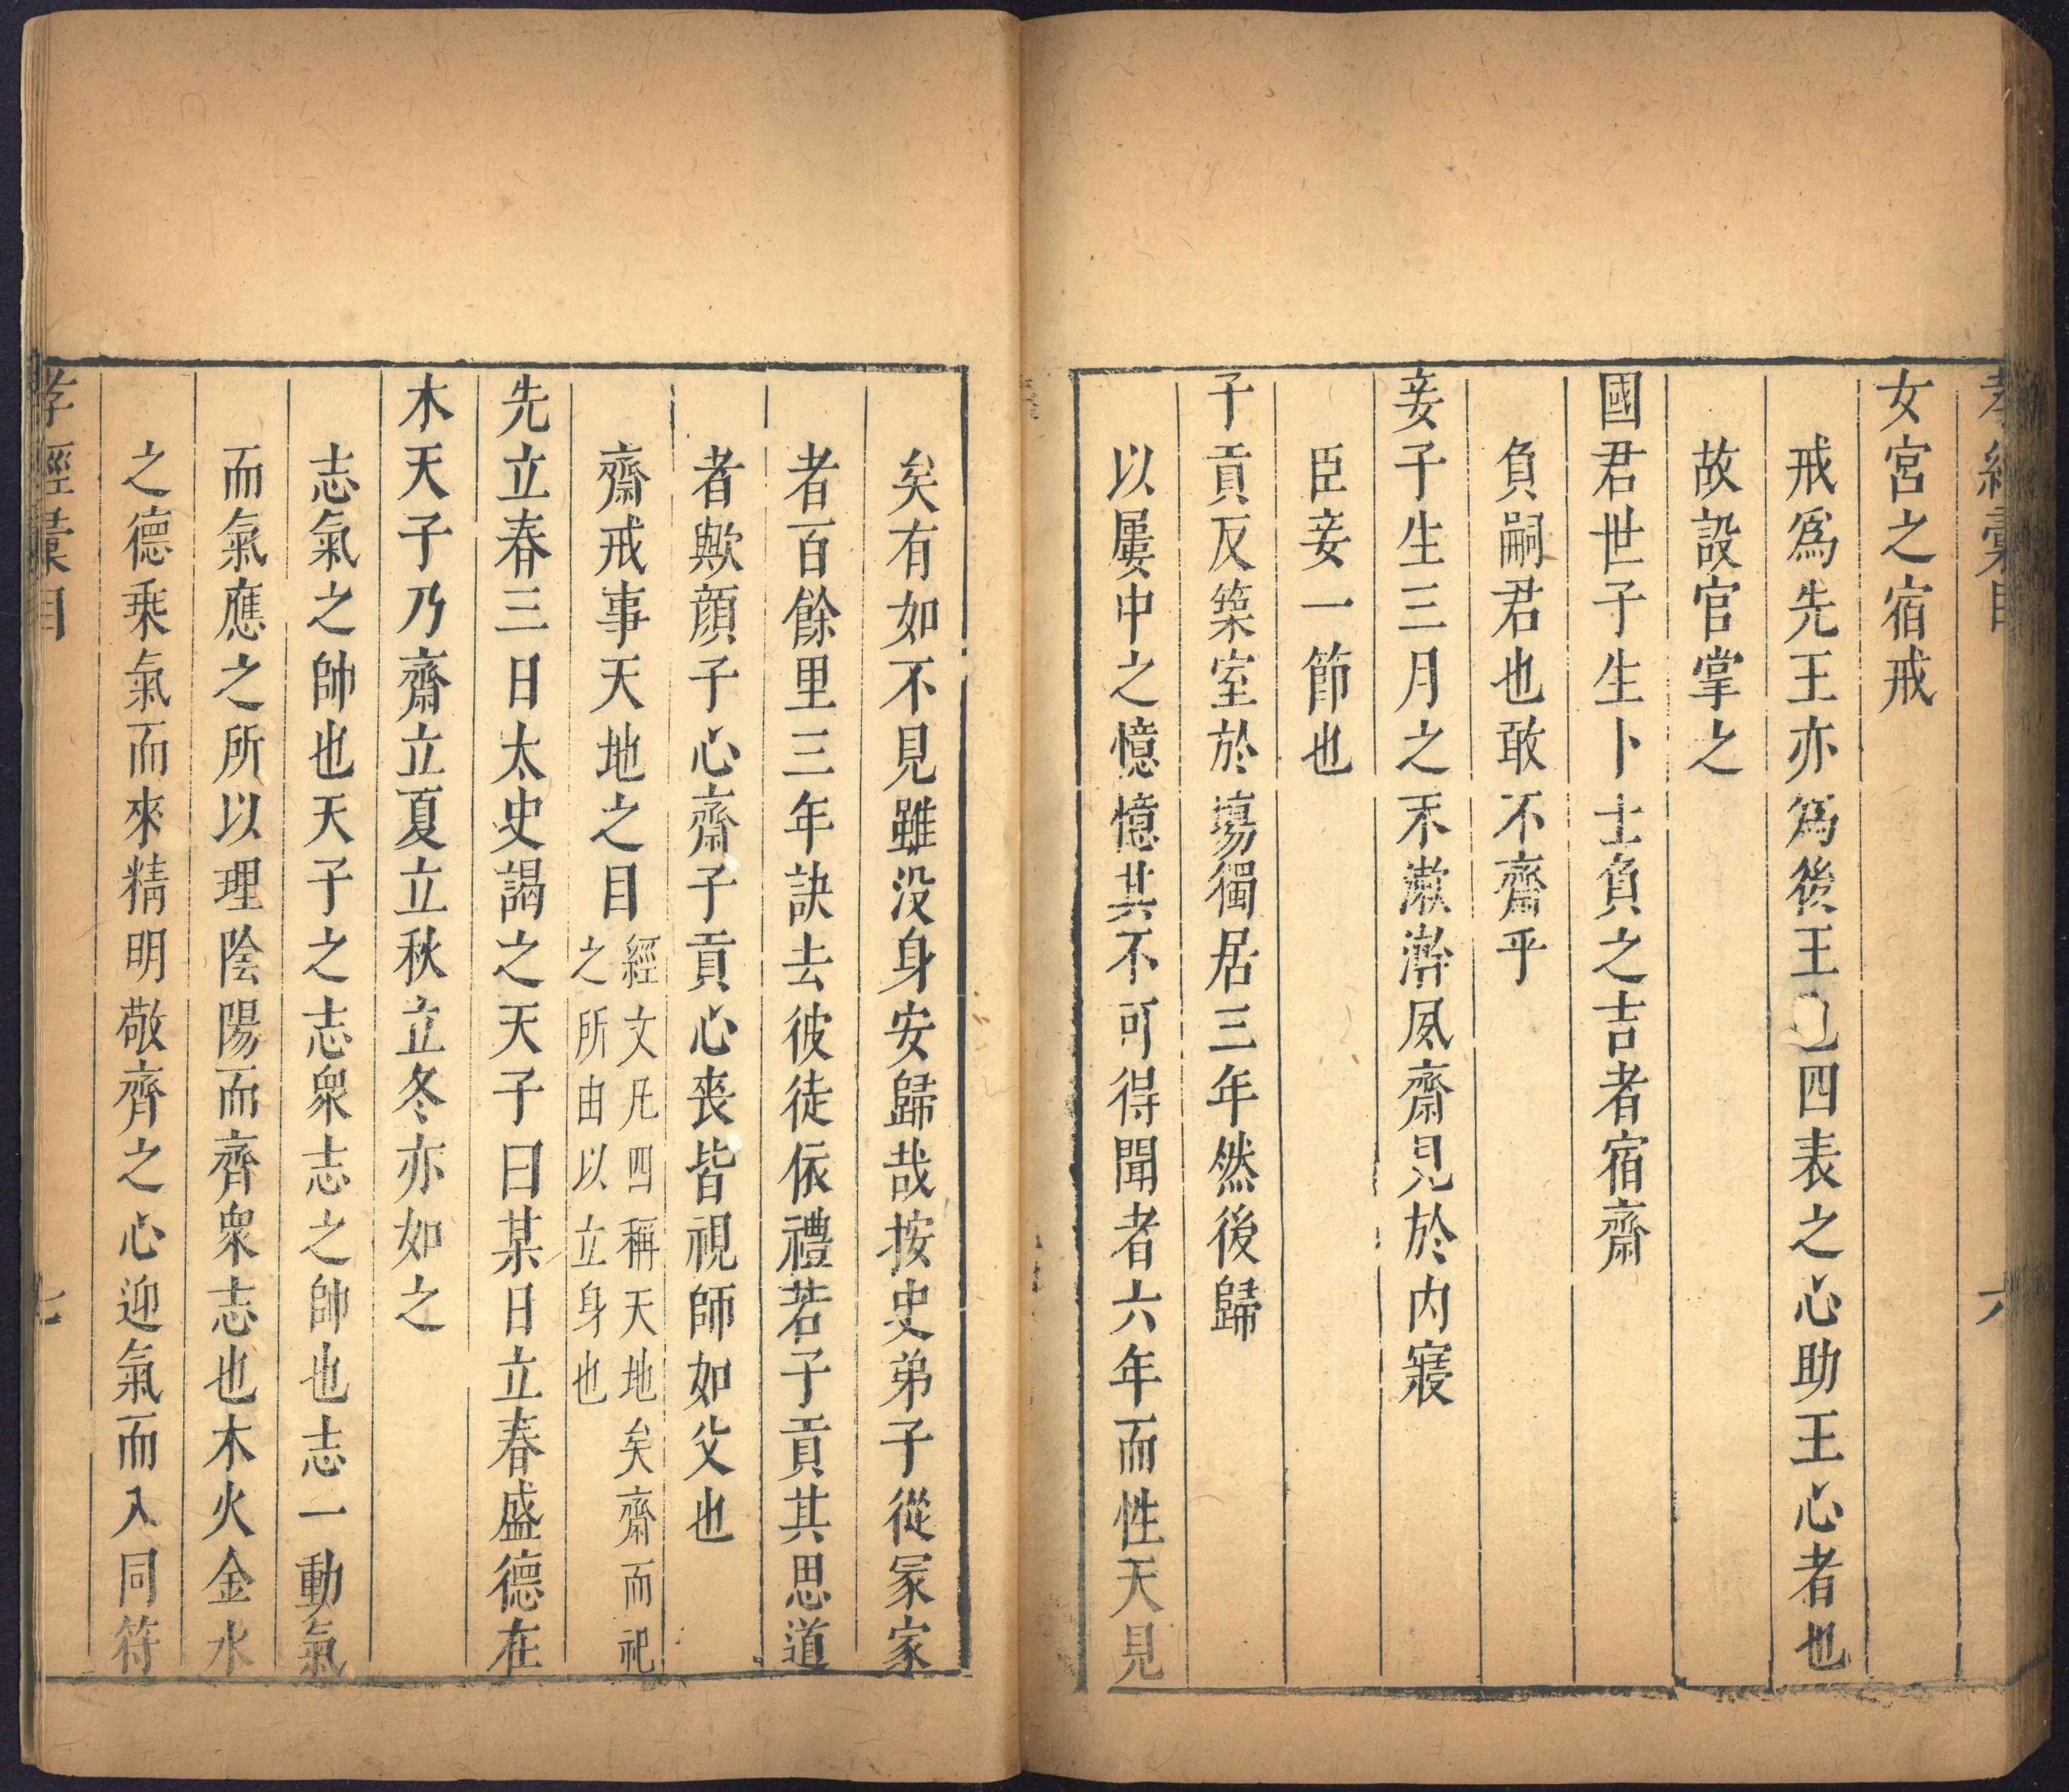 女宮之宿戒
戒爲先王亦爲後王四表之心助王心者也
故設官掌之
國君世子生卜士負之吉者宿齋
負嗣君也敢不齋乎
妾子生三月之末漱澣夙齋見於内寢
臣妾一節也
子貢反築室於塲獨居三年然後歸
以屢中之憶憶其不可得聞者六年而性天見
孝經彙目
六
矣有如不見雖没身安歸哉按史弟子從冢家
者百餘里三年訣去彼徒依禮若子貢其思道
者歟顔子心齋子貢心喪皆視師如父也
齋戒事天地之目經文凡四稱天地矣齋而祀
之所由以立身也
先立春三日太史謁之天子曰某日立春盛德在
木天子乃齋立夏立秋立冬亦如之
志氣之帥也天子之志衆志之帥也志一動氣
而氣應之所以理陰陽而齊衆志也木火金水
之德乗氣而來精明敬齊之心迎氣而入同符
孝經彙目
七